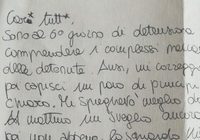 Car* tutt*,
Sono al 6° giorno di detenzione
comprendere i complessi mecca
delle detenute. Anzi, mi corregg
poi capisci un paio di principi
chiaro. Mi spiegherò meglio d
Al mattino mi sveglio
poi non appena lo sguardo